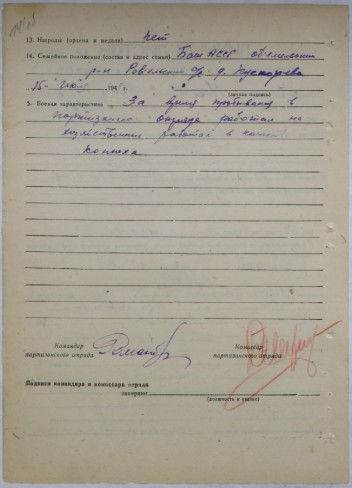 13. Награды (ордена и медали) нет
14. Семейное положение (состав и адрес семьи) БашАССР
р-н с/с д.
15 194 г.
(личная подпись)
5. Боевая характеристика За время пребывания в
партизанском отряде работал на
хозяйственной работе в качестве
конюха
Командир
партизанского отряда
Комиссар
партизанского отряда
Подписи командира и комиссара отряда
заверяю:
(должность и звание)